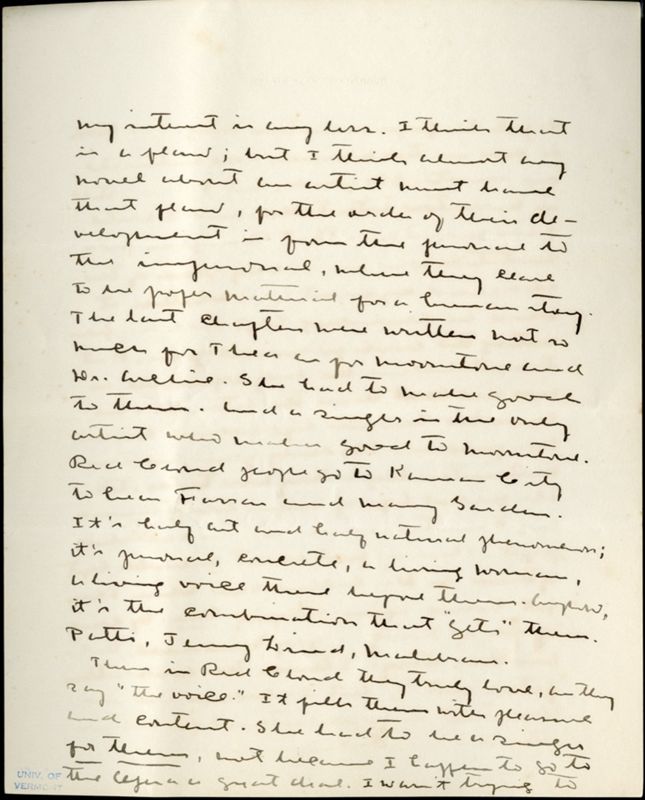 my interest is any less. I think that
is a flaw; but I think almost any
novel about an artist must have
that flaw, for the order of their de-
velopment is from the personal to
the impersonal, where they cease
to be proper material for a human story.
The last chapters were written not so
much for Thea as for Moonstone and
Dr. Archie. She had to make good
to them. And a singer is the only
artist who makes good to Moonstone.
Red Cloud people go to Kansas City
to hear Farrar and Mary Garden.
It's half art and half natural phenomenon;
it's personal, concrete, a living woman,
a living voice there before them. Anyhow,
it's the combination that "gets" them.
Patti, Jenny Lind, Malibran.
Them in Red Cloud they truly love, as they
say "the voice." It fills them with pleasure
and content. She had to be a singer
for them, not because I happen to go to
the Opera a great deal. I wasn't trying to
UNIV. OF
VERMONT